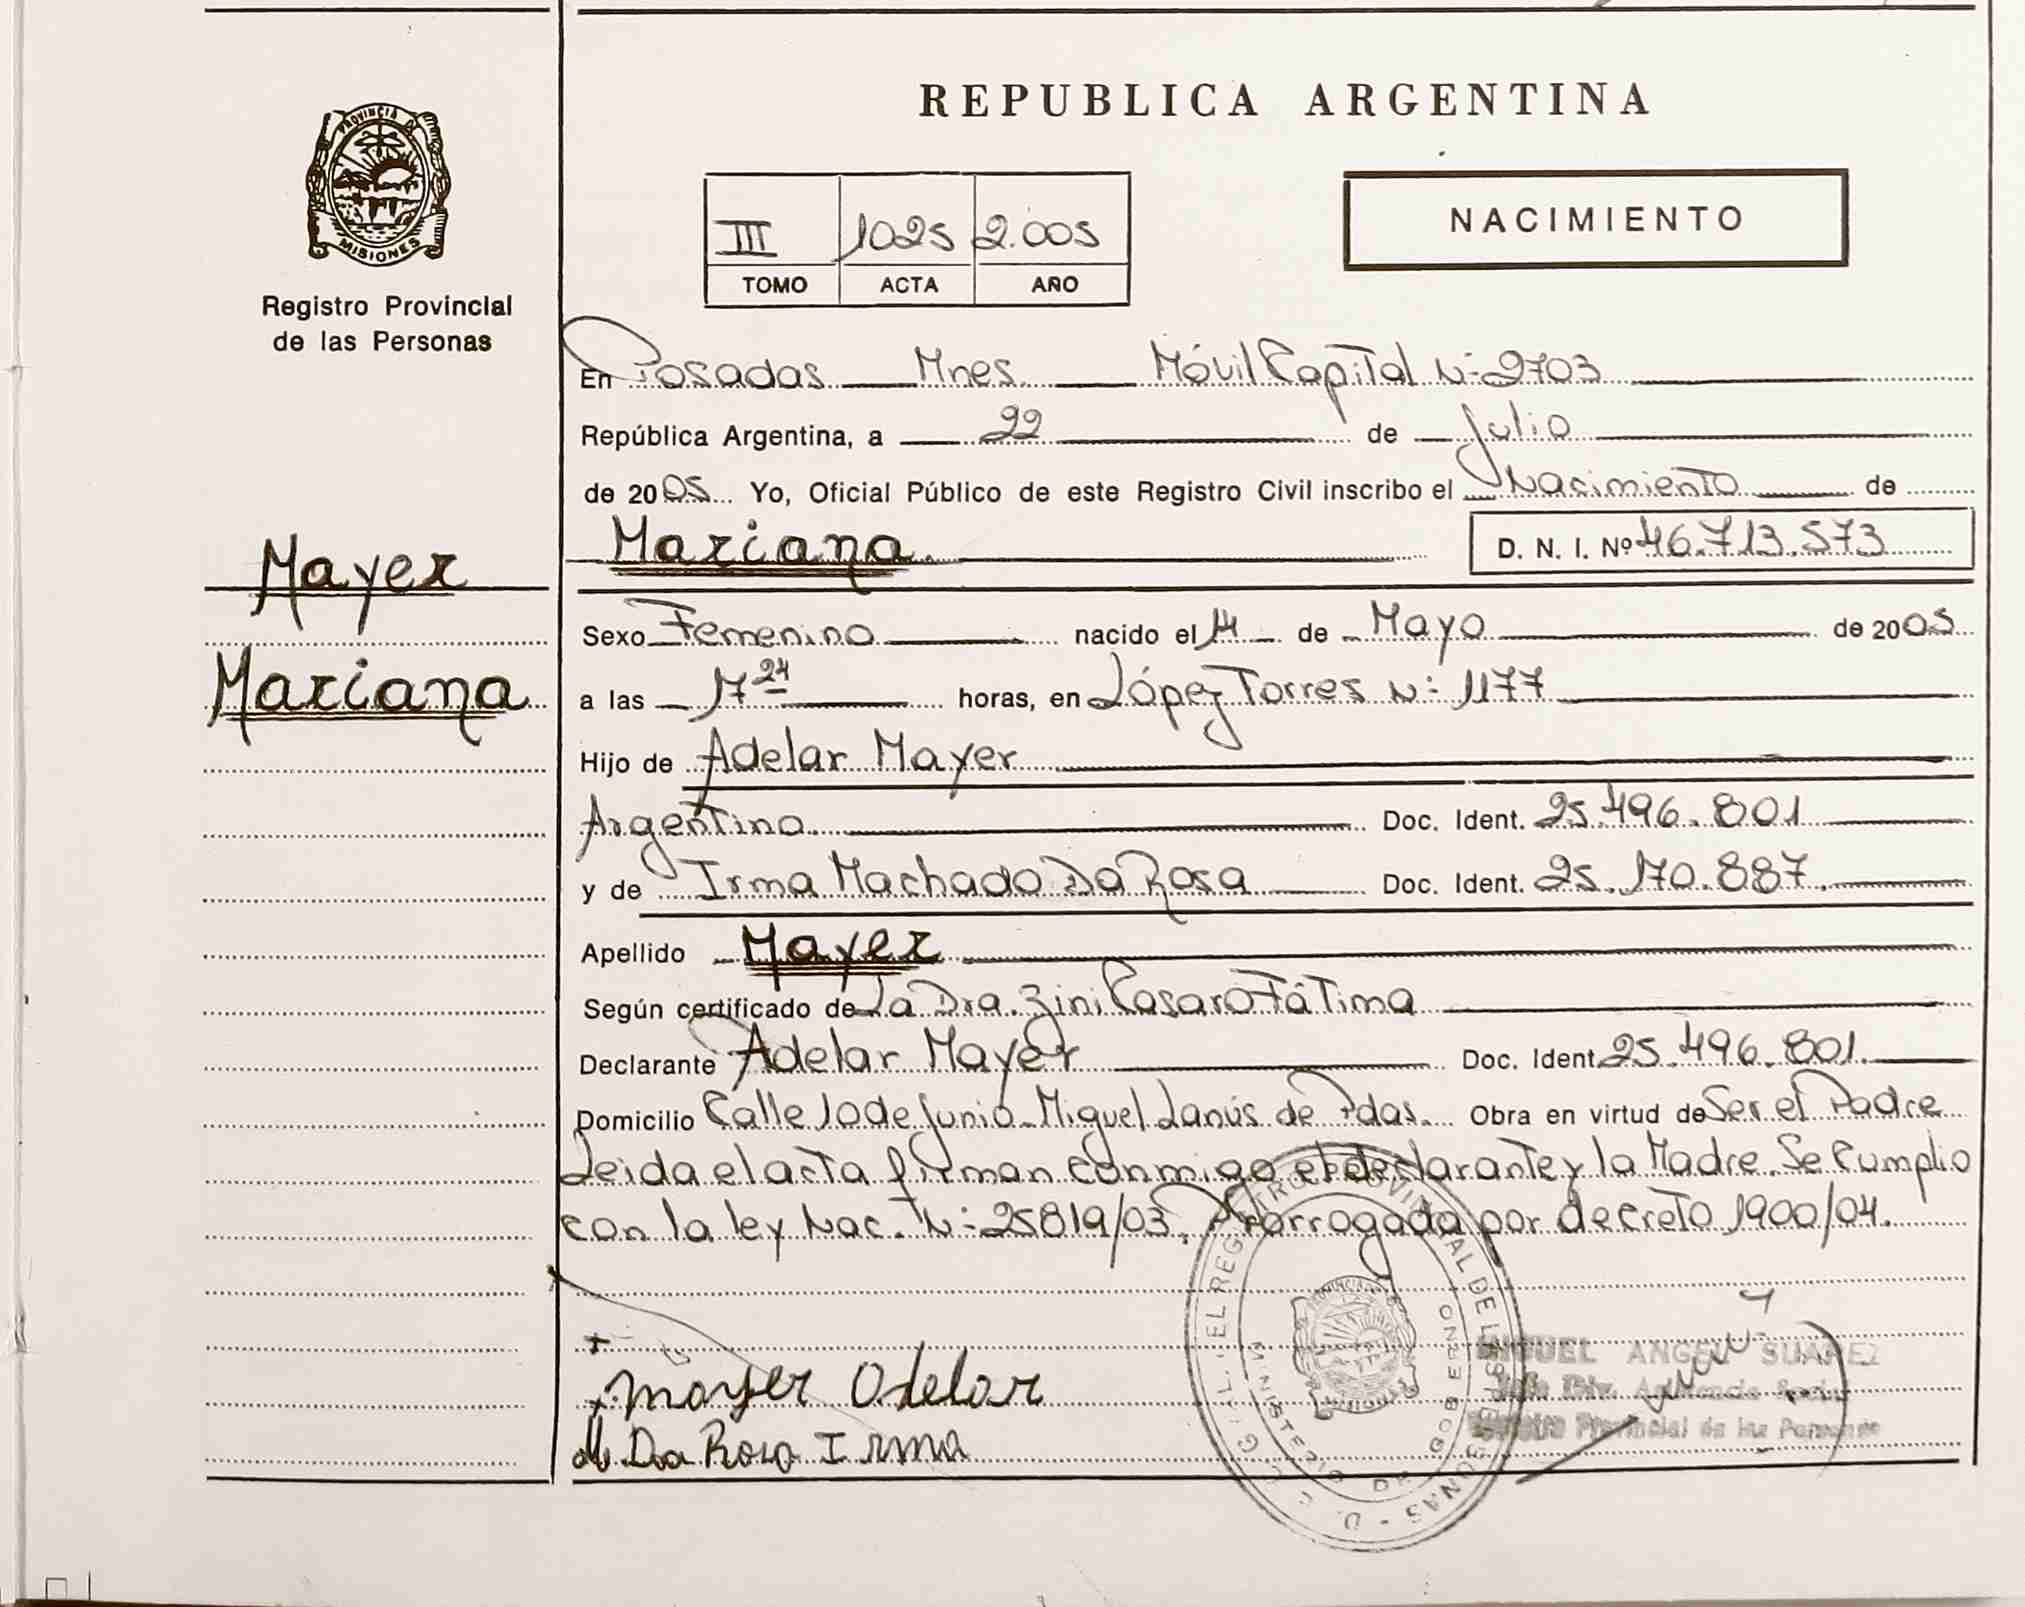 REPUBLICA ARGENTINA
PROVINCIA DE MISIONES
Registro Provincial
de las Personas
III 1025 2.005
TOMO ACTA AÑO
NACIMIENTO
En Posadas Mnes Móvil Capital N: 2703
República Argentina, a 22 de Julio
de 2005 Yo, Oficial Público de este Registro Civil inscribo el Nacimiento de
Mariana D. N. I. Nº 46.713.573
Mayer
Mariana
Sexo Femenino nacido el 14 de Mayo de 2005
a las 17 24 horas, en López Torres N: 1177
Hijo de Adelar Mayer
Argentino Doc. Ident. 25.496.801
y de Irma Machado Da Rosa Doc. Ident. 25.170.887
Apellido Mayer
Según certificado de La Dra. Zini Casaro Fátima
Declarante Adelar Mayer Doc. Ident. 25.496.801
Domicilio Calle 10 de Junio - Miguel Lanús de Pdas. Obra en virtud de Ser el Padre
Leida el acta firman conmigo el declarante y la Madre. Se Cumplio
con la ley Nac. N: 25819/03. Prorrogada por decreto 1900/04.
Mayer Adelar
M. Da Rosa Irma
MIGUEL ANGEL SUAREZ
Registro Provincial de las Personas